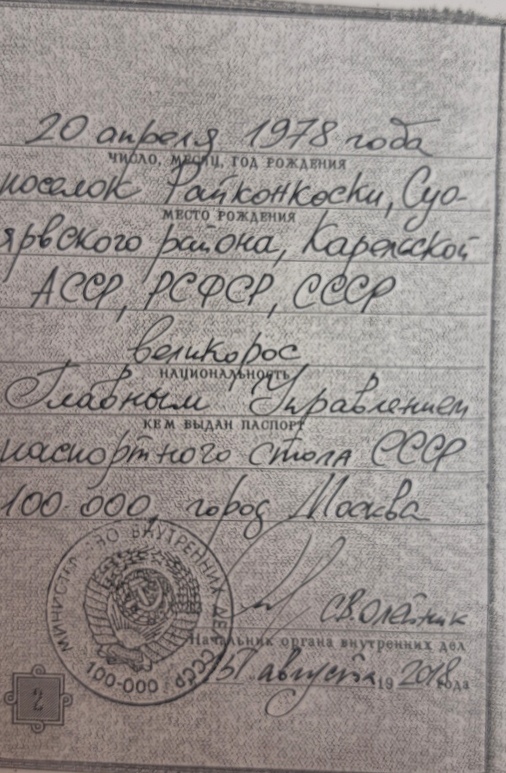 20 апреля 1978 года
ЧИСЛО, МЕСЯЦ, ГОД РОЖДЕНИЯ
поселок Райконкоски, Суо-
МЕСТО РОЖДЕНИЯ
ярвского района, Карельской
АССР, РСФСР, СССР
великорос
НАЦИОНАЛЬНОСТЬ
Главным Управлением
КЕМ ВЫДАН ПАСПОРТ
паспортного стола СССР
100-000, город Москва
МИНИСТЕРСТВО ВНУТРЕННИХ ДЕЛ СССР
100-000
С.В Олейник
Начальник органа внутренних дел
августа 19 2018 года
2